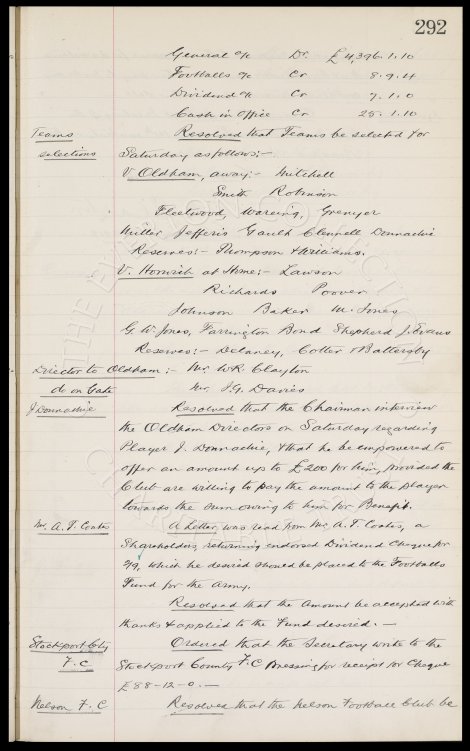 292
General a/c Dr. £4,396.1.10
Footballs a/c Cr 8.9.4
Dividend a/c Cr 7.1.0
Cash in Office Cr 25.1.10
Teams Resolved that Teams be selected for
selections Saturday as follows:-
V Oldham, away:- Mitchell
Smith Robinson
Fleetwood, Wareing, Grenyer
Miller Jefferis Gault Clennell Donnachie
Reserves:- Thompson & Williams.
V. Horwich at Home:- Lawson
Richards
Johnson Baker M. Jones
G. W. Jones, Farrington Bond Shepherd J. Evans
Reserves:- Delaney, Cotter & Battersby
Director to Oldham:- Mr. W.R. Clayton
do on Gate Mr. J.G. Davies
J Donnachie Resolved that the Chairman interview
the Oldham Directors on Saturday regarding
Player J. Donnachie, & that he be empowered to
offer an amount up to £200 for him, provided the
Club are willing to pay the amount to the player
towards the sum owing to him for Benefit.
Mr. A. T. Coates A letter was read from Mr. A. T. Coates, a
Shareholder, returning endorsed Dividend Cheque for
which he desired should be placed to the Footballs
Fund for the Army.
Resolved that the amount be accepted with
thanks & applied to the Fund desired.-
Stockport Cty Ordered that the Secretary write to the
F.C Stockport County F.C pressing for receipt for Cheque
£88-12-0.-
Nelson F.C Resolved that the Nelson Football Club be